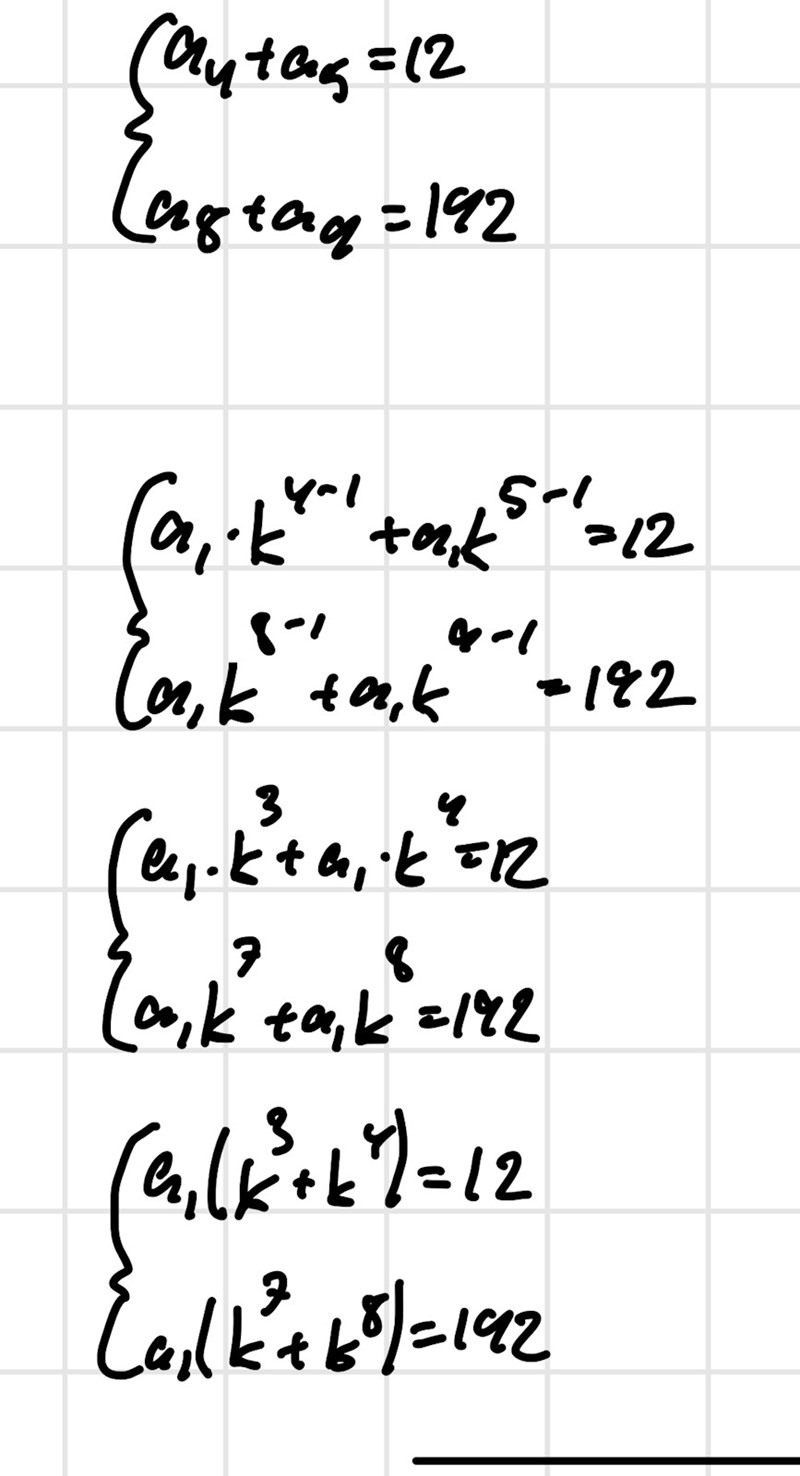 a₄+a₅=12
a₈+a₉=192
a₁·k⁴⁻¹+a₁k⁵⁻¹=12
a₁k⁸⁻¹+a₁k⁹⁻¹=192
a₁·k³+a₁·k⁴=12
a₁k⁷+a₁k⁸=192
a₁(k³+k⁴)=12
a₁(k⁷+k⁸)=192